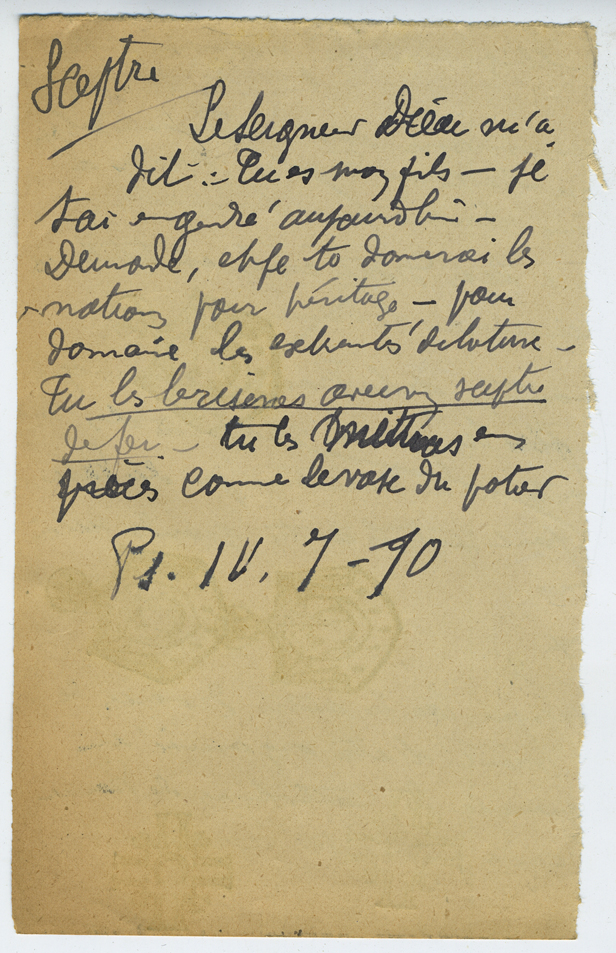 Sceptre
Le Seigneur Dieu m'a
dit :- Tu es mon fils — je
t'ai engendré aujourd'hui —
Demande, et je te donnerai les
nations pour héritage — pour
domaine les extrémités de la terre —
Tu les briseras avec un sceptre
de fer — tu les mettras en
pièces comme le vase du potier
Ps. IV. 7-90